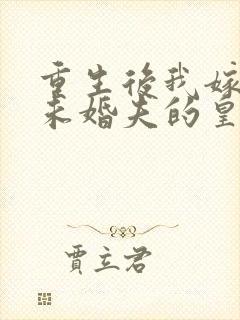 重生後我嫁
未婚夫的皇
賈立君